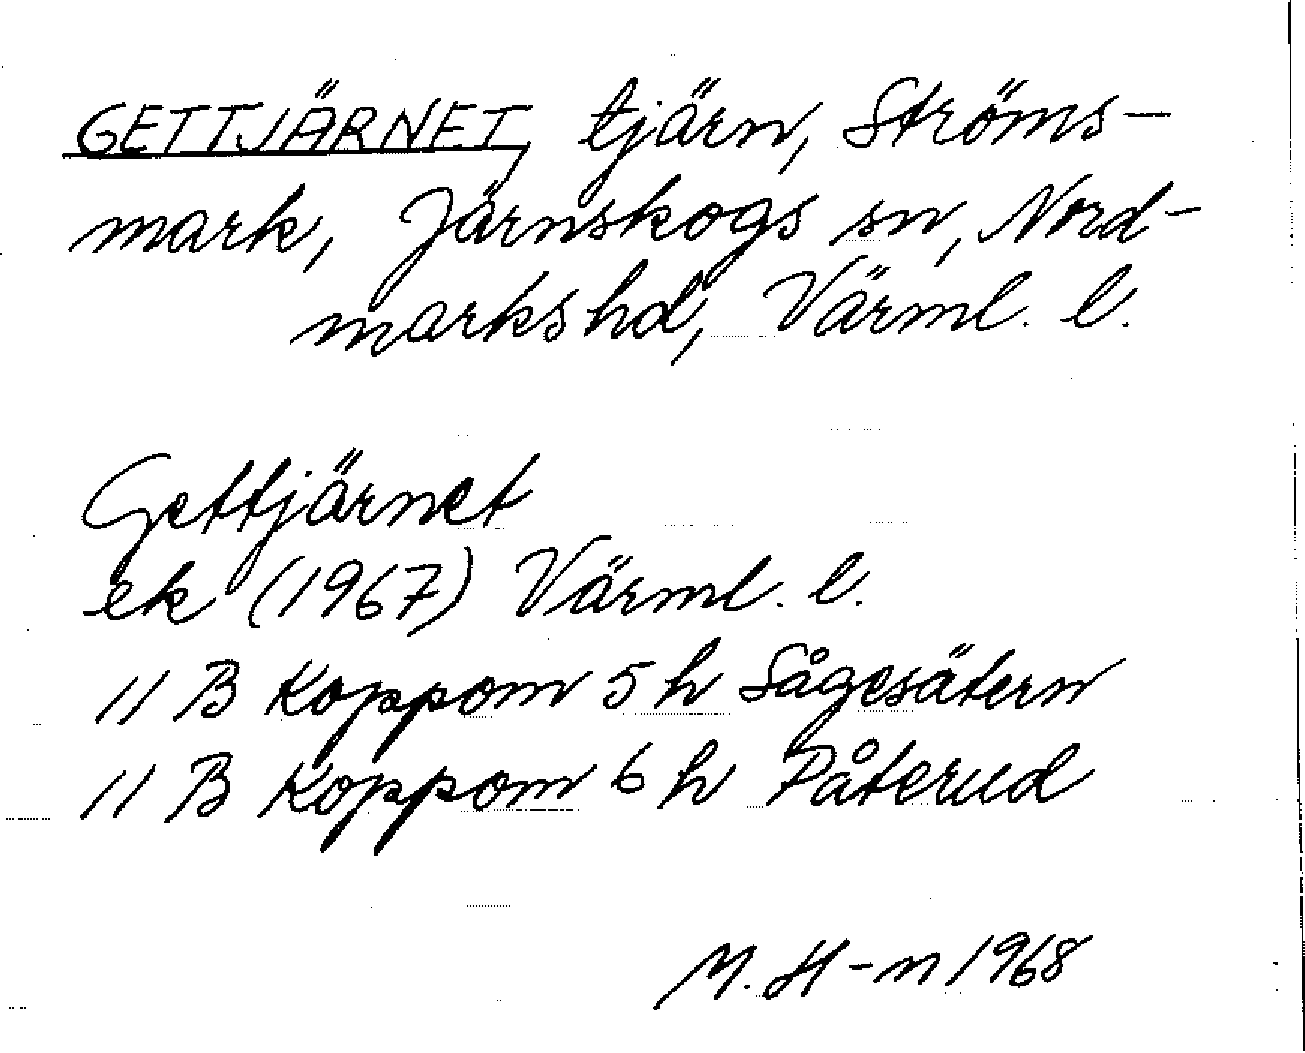 GETTJÄRNET, tjärn, Ströms-
mark, Järnskogs sn, Nord-
markshd, Värml. l.
Gettjärnet
ek (1967) Värml. l.
11 B Koppom 5 h Sågesätern
11 B Koppom 6 h Påterud
M. H-n 1968